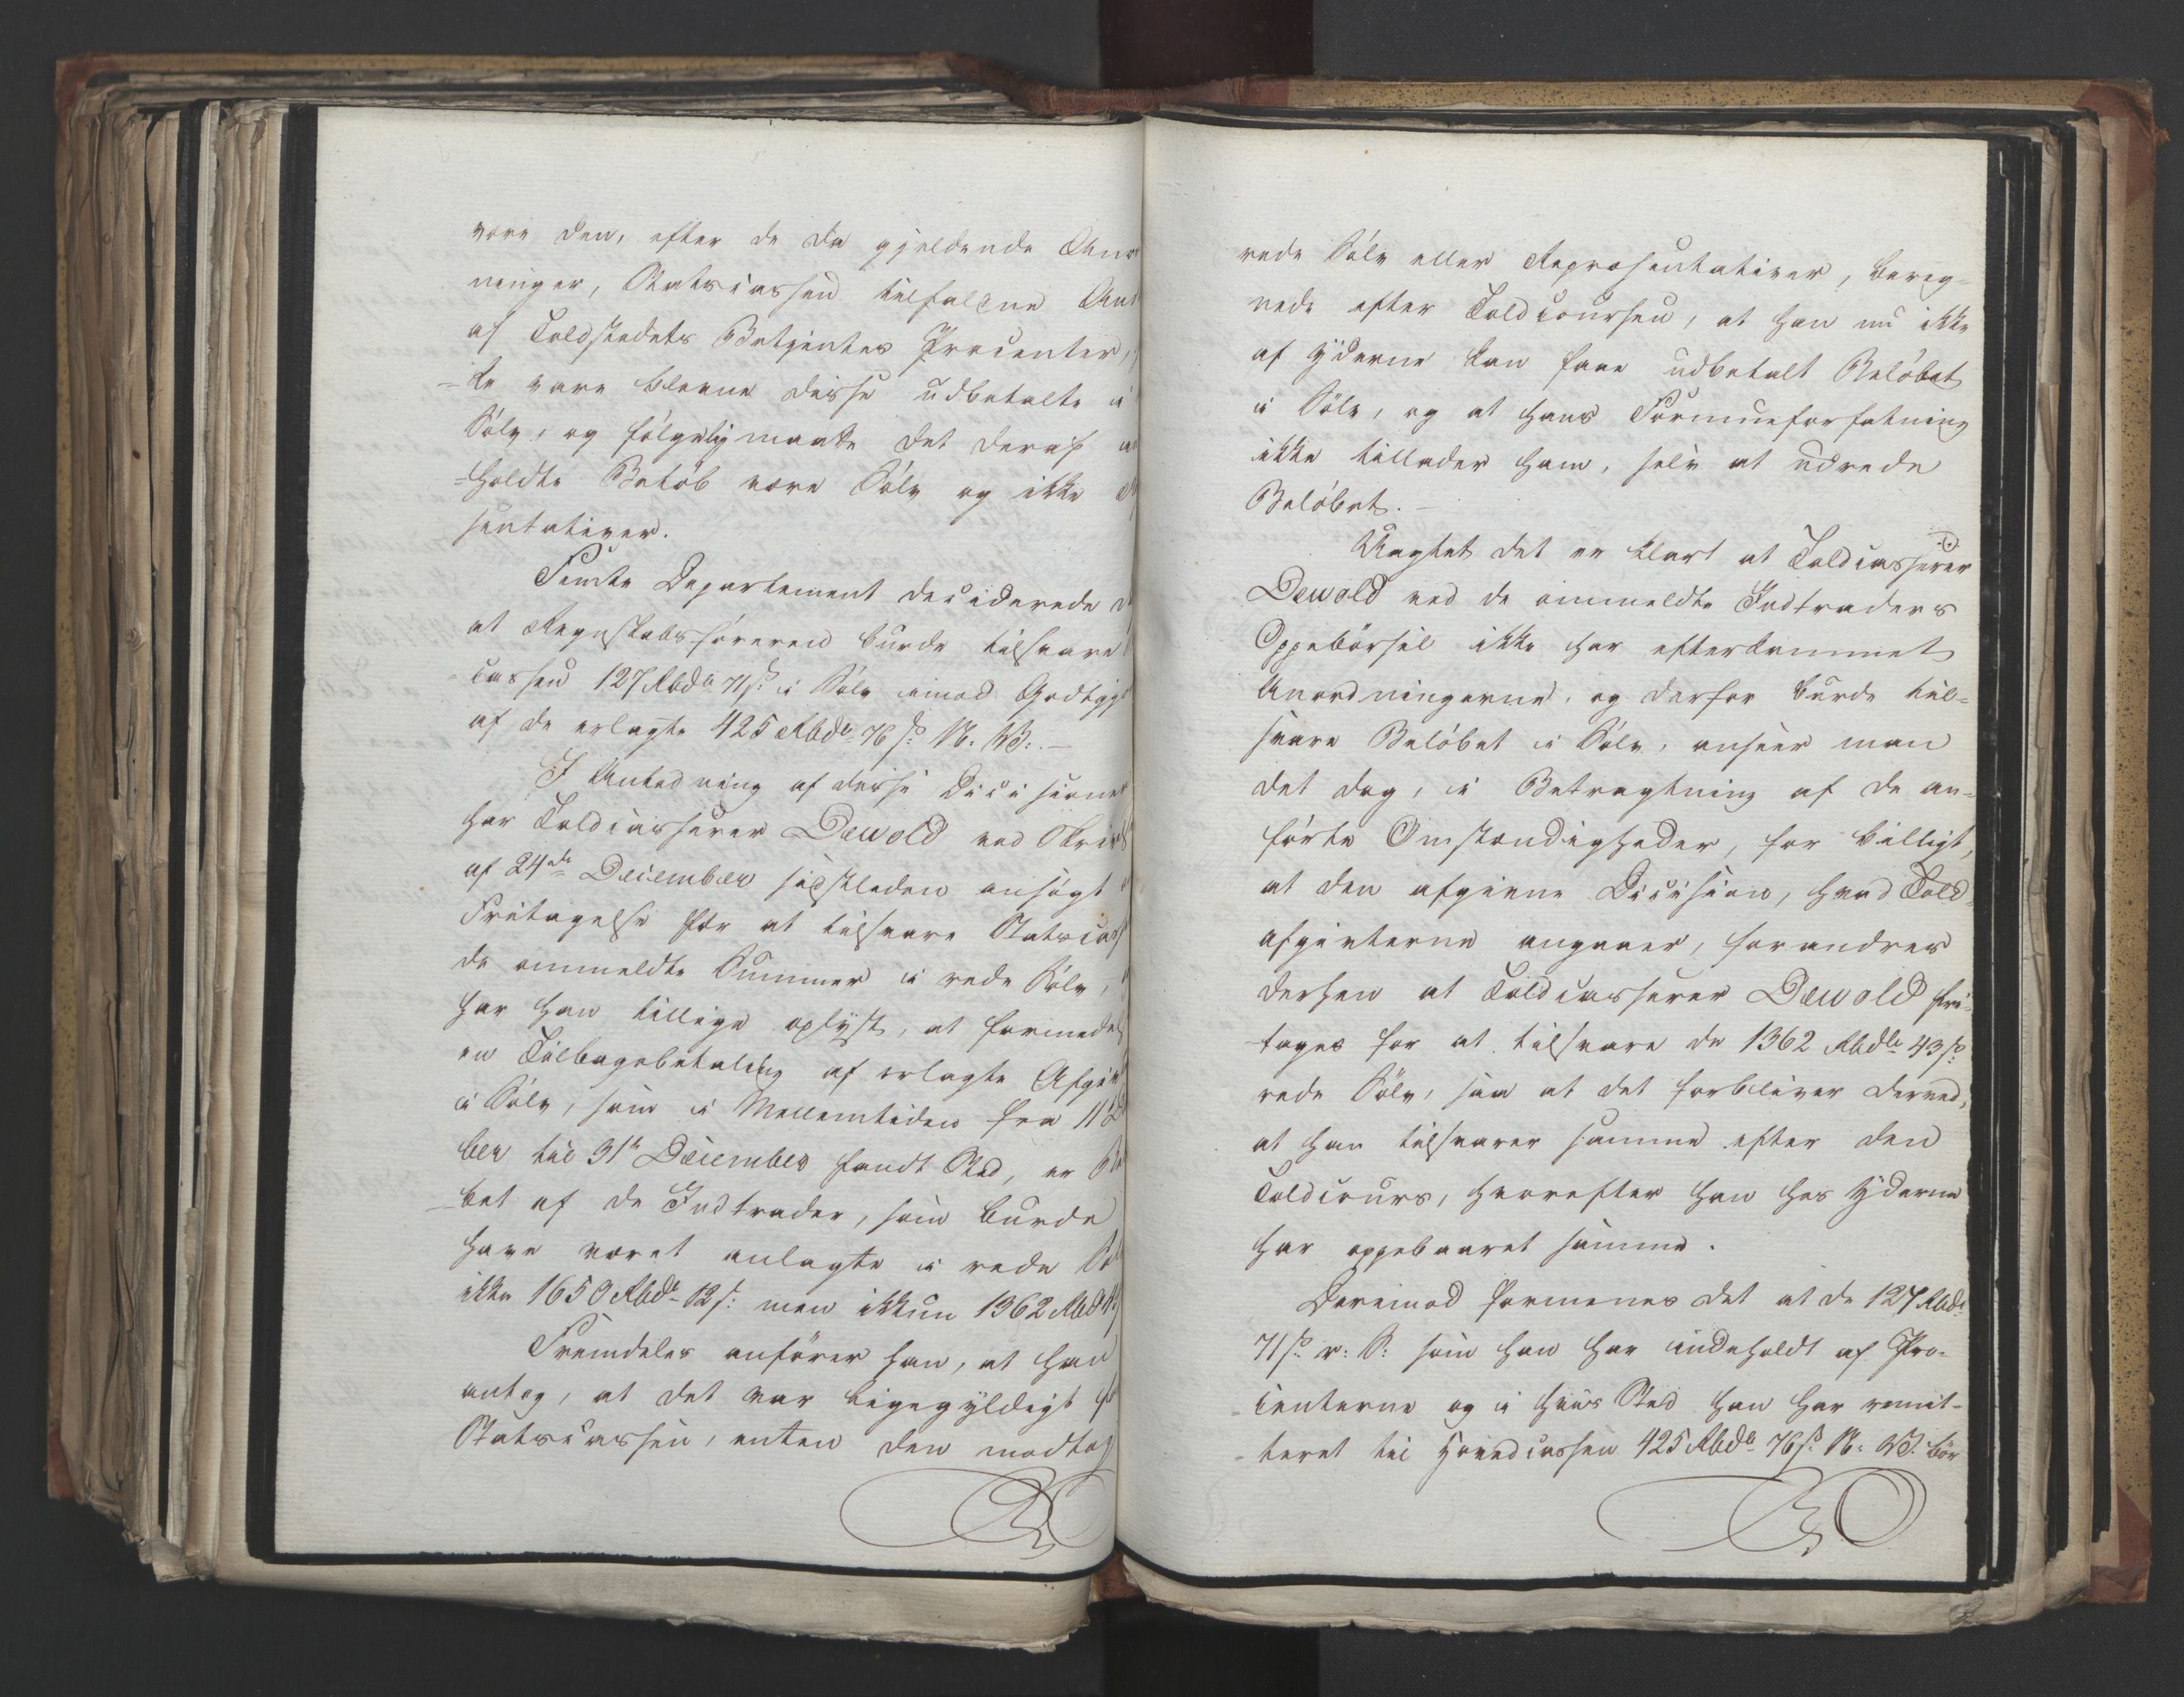 være den, efter de da gjeldende Anor
ninger, Statscassen tilfaldne An
af Toldstedets Betjentes Procenter,
-te vare blevne disse udbetalte i
Sølv, og følgelig maatte det deraf in
=holdte Beløb være Sølv og ikke Re
sentativer.
Femte Departement deciderede
at Regnskabsføreren burde tilsvare
cassen 127 Rbdr 71 s: i Sølv imod Godtgj
af de erlagte 425 Rbdr 76 s: N. V: -
I Anledning af disse Decisioner
har Toldcasserer Dewold ved Skriv
af 24de December sidstleden ansøgt
Fritagelse for at tilsvare Statscass
de ommeldte Summer i rede Sølv,
har han tillige oplyst, at formedelst
en Tilbagebetaling af erlagte Afgi
i Sølv, som i Mellemtiden fra 11
ber til 31te December fandt Sted, er Be
-bet af de Indtrader, som burde
have været anlagte i rede Sø
ikke 1650 Rbdr 12 s: men ikkun 1362 Rbd
Fremdeles anfører han, at han
antog, at det var ligegyldigt f
Statscassen, enten den modtog
rede Sølv eller Repræsentativer, bereg=
nede efter Toldcoursen, at han nu ikke
af Yderne kan faae udbetalt Beløbet
i Sølv, og at hans Formueforfatning
ikke tillader ham, selv at udrede
Beløbet. -
Uagtet det er klart at Toldcasserer
Dewold ved de ommeldte Indtraders
Oppebørsel ikke har efterkommet
Anordningerne, og derfor burde til=
svare Beløbet i Sølv, anseer man
det dog, i Betragtning af de an=
førte Omstændigheder, for billigt,
at den afgivne Decision, hvad Told=
afgivterne angaaer, forandres
derhen at Toldcasserer Dewold fri=
tages for at tilsvare de 1362 Rbdlr 43 s:
rede Sølv, saa at det forbliver derved,
at han tilsvarer samme efter den
Toldcours, hvorefter han hos Yderne
har oppebaaret samme.
Derimod formenes det at de 127 Rbdr
71 s: r: S: som han har indeholdt af Pro=
=centerne og i hvis Sted han har remit-
=teret til Hovedcassen 425 Rbdr 76 s: N: V. bør